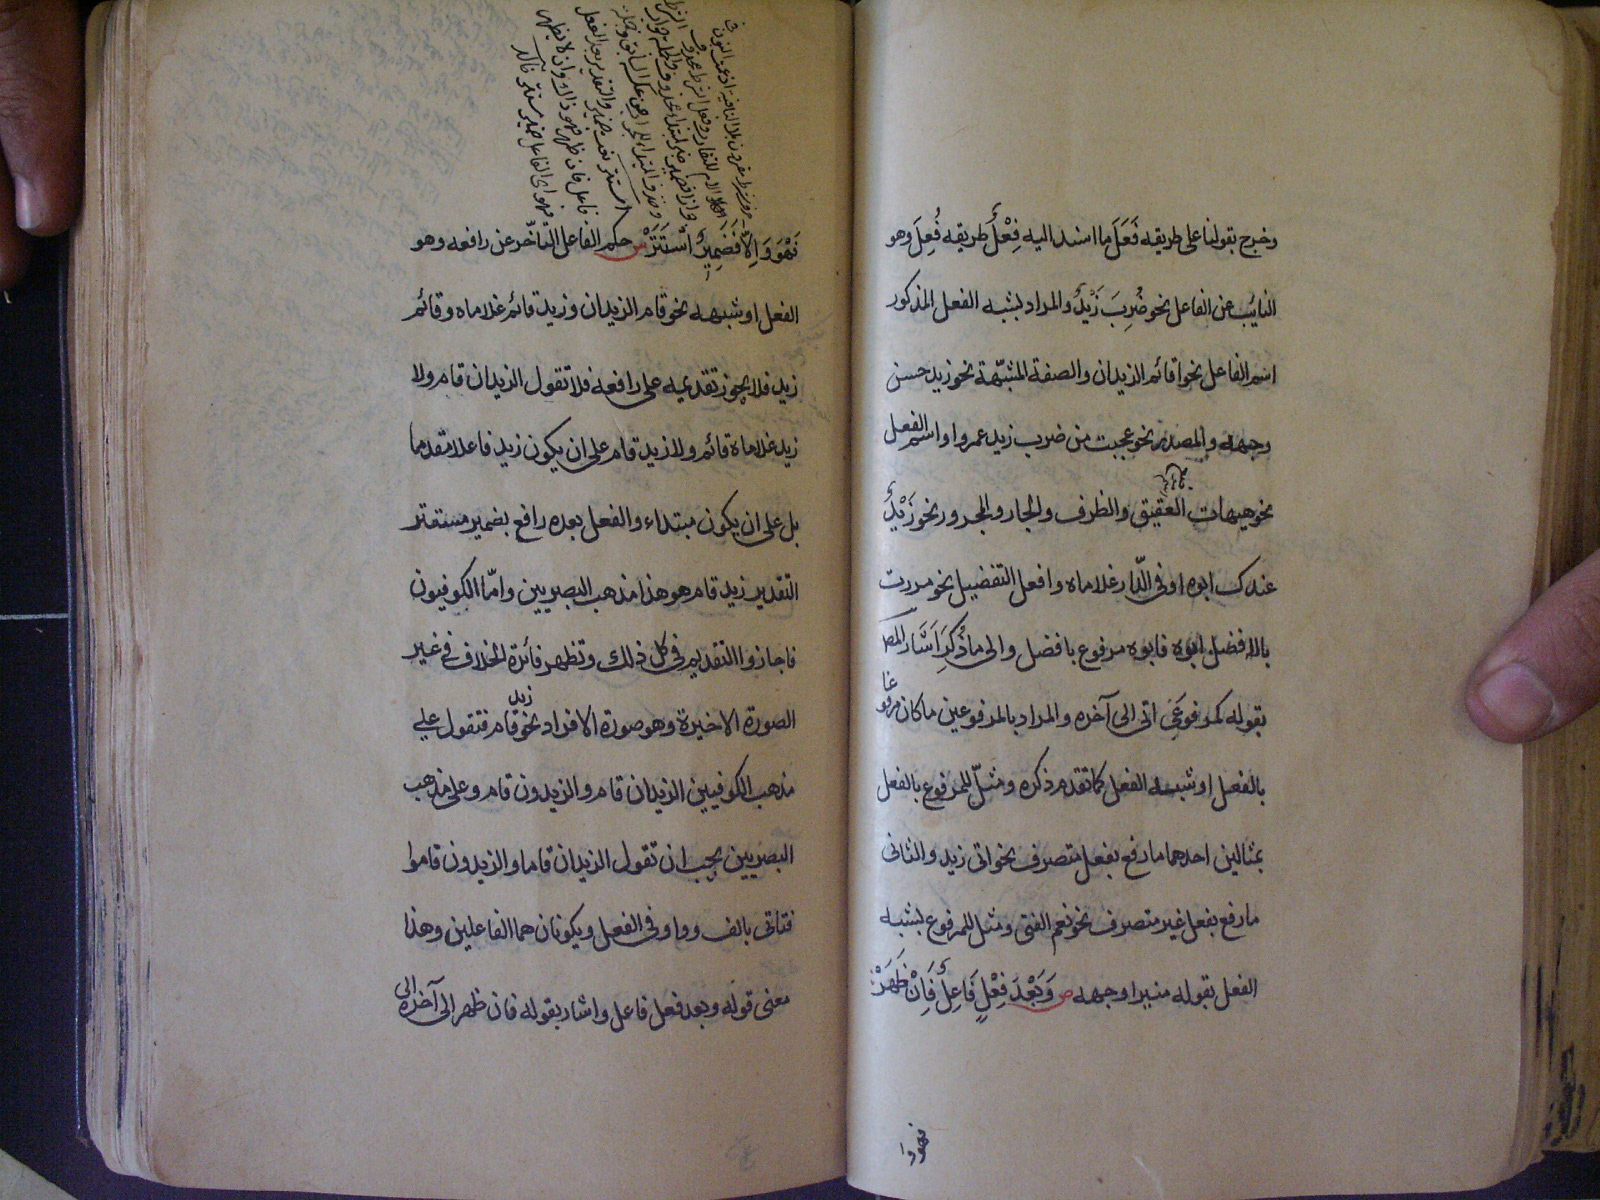 وخرج بقولنا على طريقه فَعَلَ ما اسند اليه فِعْلٌ طريقه فُعِلَ وهو
النائب عن الفاعل نحو ضُرِبَ زَيْدٌ والمراد بشبه الفعل المذكور
اسم الفاعل نحو اقائم الزيدان والصفة المشبّهة نحو زيد حسن
وجهه والمصدر نحو عجبت من ضرب زيد عمروا واسم الفعل
نحو هيهات العقيق والظرف والجار والمجرور نحو زَيْدٌ
عندك ابوه او فى الدّار غلاماه وافعل التفضيل نحو مررت
بالافضل ابوه فابوه مرفوع بافضل والى ما ذُكِرَ اَشَار المص
بقوله كمرفوعَىْ اتى الى آخره والمراد بالمرفوعين ما كان مرفوعا
بالفعل او شبه الفعل كما تقدم ذكره ومثّل للمرفوع بالفعل
بمثالين احدهما ما رفع بفعل متصرف نحو اتى زيد والثانى
ما رفع بفعل غير متصرف نحو نعم الفتى ومثل للمرفوع بشبه
الفعل بقوله منيرا وجهه ص وَبَعْدَ فِعْلٍ فَاعِلٌ فَاِنْ ظَهَرْ
فهو وا
فَهْوَ وَاِلَّا فَضَمِيرٌ اسْتَتَرْ ش حكم الفاعل التّأخّر عن رافعه وهو
الفعل او شبهه نحو قام الزيدان وزيد قائم غلاماه وقائم
زيد فلا يجوز تقديمه على رافعه فلا تقول الزيدان قام ولا
زيد غلاماه قائم ولا زيد قام على ان يكون زيد فاعلا مقدما
بل على ان يكون مبتداء والفعل بعده رافع بضمير مستتر
التقدير زيد قام هو هذا مذهب البصريين وامّا الكوفيون
فاجازوا التقديم فى كل ذلك وتظهر فائدة الخلاف فى غير
الصورة الاخيرة وهو صورة الافراد نحو زيد قام فتقول على
مذهب الكوفيين الزيدان قام والزيدون قام وعلى مذهب
البصريين يجب ان تقول الزيدان قاما والزيدون قاموا
فتاتى بالف وواو فى الفعل ويكونان هما الفاعلين وهذا
معنى قوله وبعد فعل فاعل واشار بقوله فان ظهر الى آخره الى